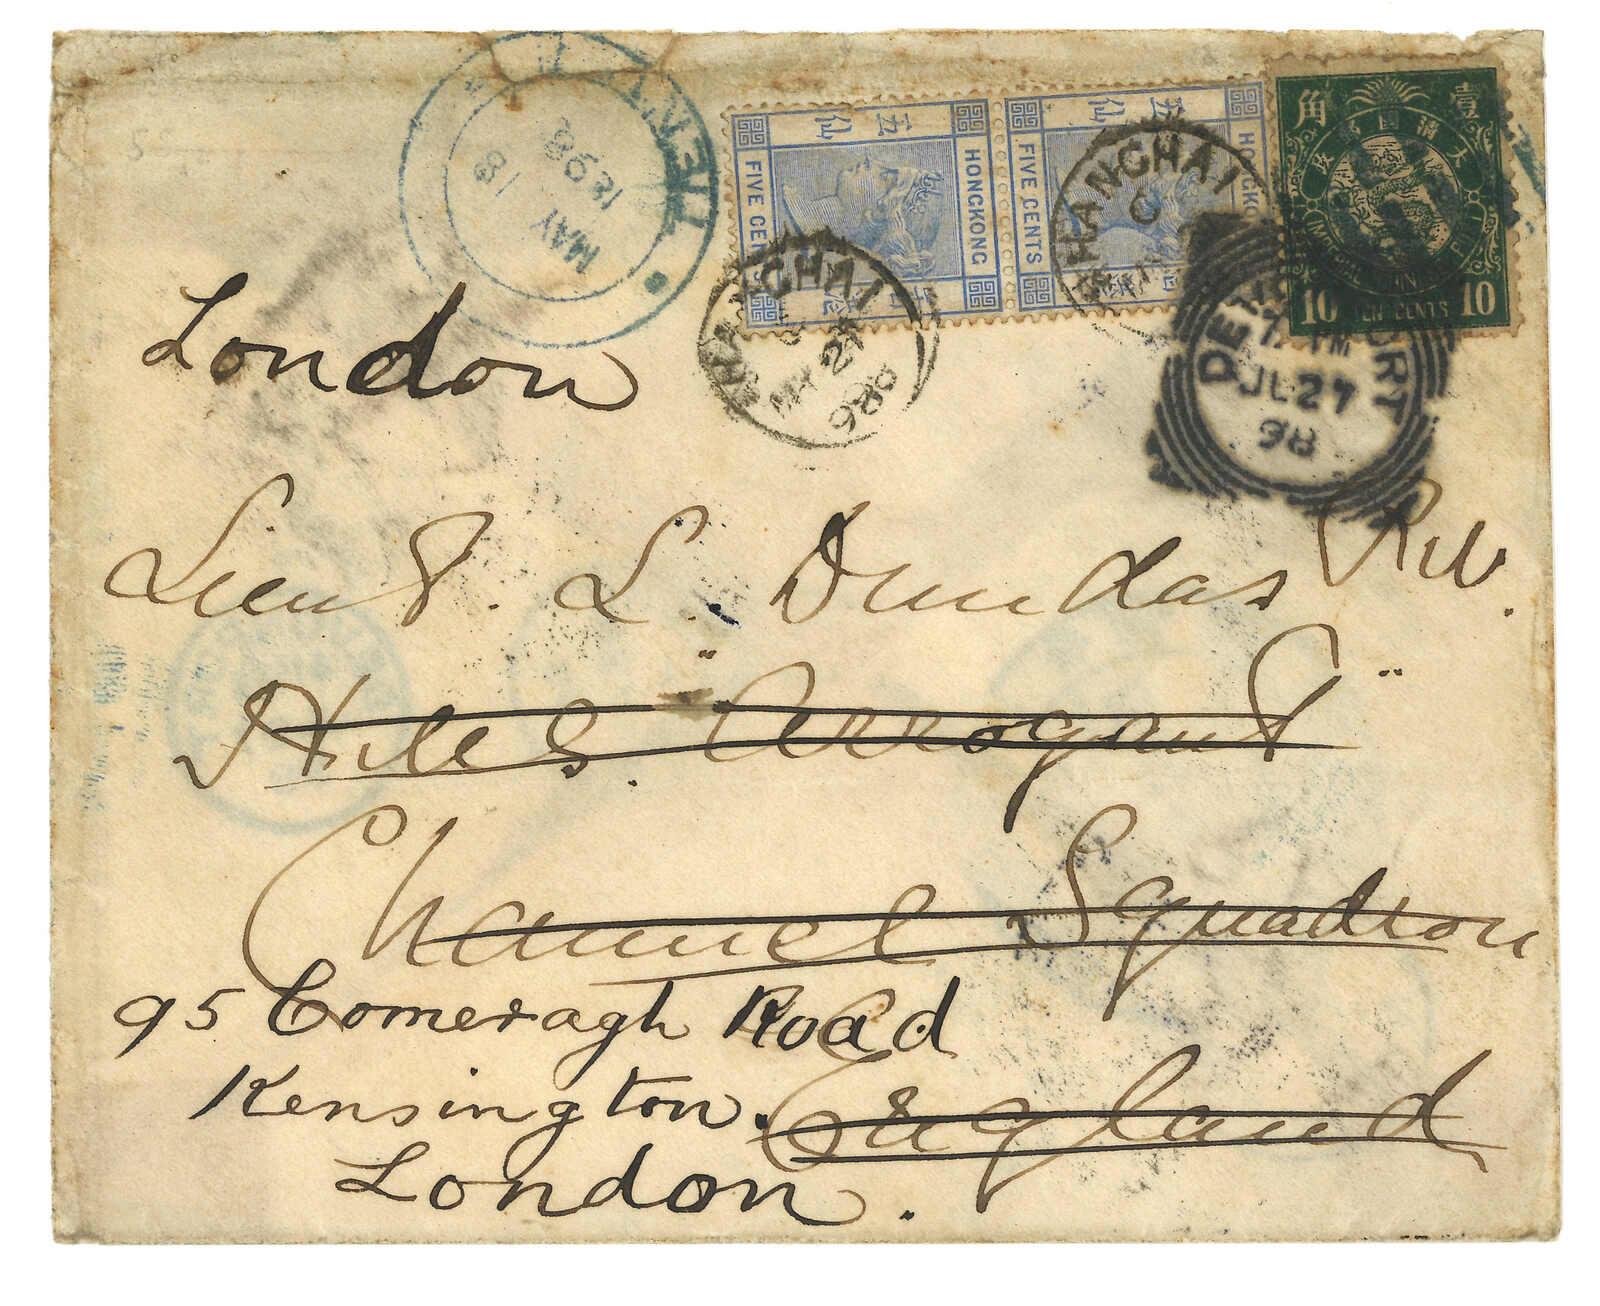 TIENTSIN
MAY 18
1898
五仙
FIVE CENTS
HONGKONG
五仙
FIVE CENTS
HONGKONG
SHANGHAI
C
SHANGHAI
MY 24
98
壹角
大清國郵政
IMPERIAL CHINESE POST
10 TEN CENTS 10
DEVONPORT
JL 27
98
London
Lieut. L. Dundas R.N.
H.M.S. "Arrogant"
Channel Squadron
95 Comeragh Road
Kensington. England
London.